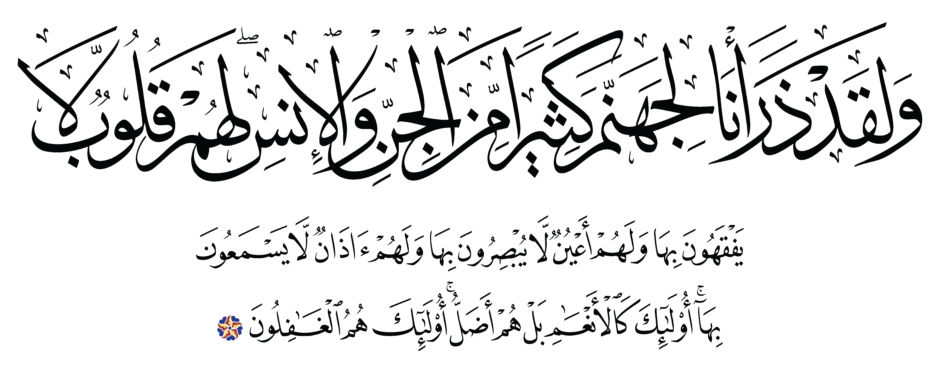 وَلَقَدْ ذَرَأْنَا لِجَهَنَّمَ كَثِيرًا مِّنَ الْجِنِّ وَالْإِنسِ ۖ لَهُمْ قُلُوبٌ لَّا
يَفْقَهُونَ بِهَا وَلَهُمْ أَعْيُنٌ لَّا يُبْصِرُونَ بِهَا وَلَهُمْ ءَاذَانٌ لَّا يَسْمَعُونَ
بِهَآ ۚ أُو۟لَٰٓئِكَ كَٱلْأَنْعَٰمِ بَلْ هُمْ أَضَلُّ ۚ أُو۟لَٰٓئِكَ هُمُ ٱلْغَٰفِلُونَ